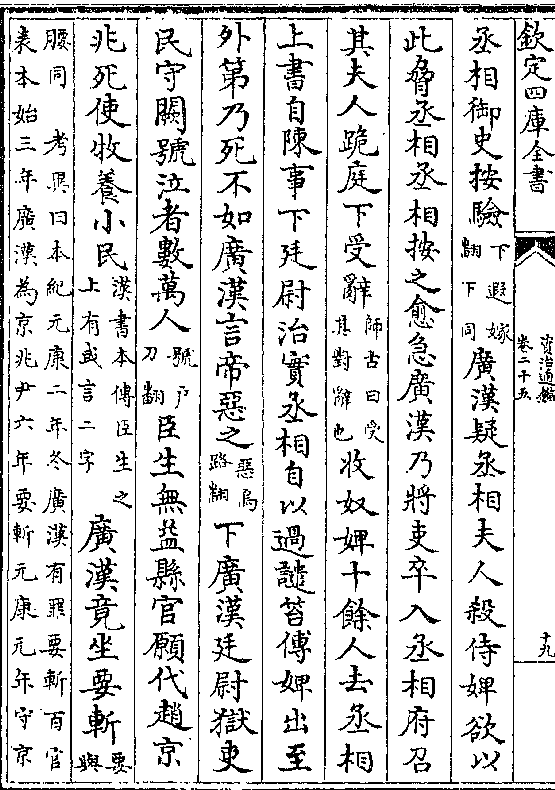 欽定四庫全書
資治通鑑
卷二十五
十九
丞相御史按驗下遐嫁翻下同廣漢疑丞相夫人殺侍婢欲以
此脅丞相丞相按之愈急廣漢乃將吏卒入丞相府召
其夫人跪庭下受辭師古曰受其對辭也收奴婢十餘人去丞相
上書自陳事下廷尉治實丞相自以過譴笞傅婢出至
外第乃死不如廣漢言帝惡之惡烏路翻下廣漢廷尉獄吏
民守闕號泣者數萬人號戶刀翻臣生無益縣官願代趙京
兆死使牧養小民漢書本傳臣生之上有或言二字廣漢竟坐要斬要與
腰同 考異曰本紀元康二年冬廣漢有罪要斬百官
表本始三年廣漢為京兆尹六年要斬元康元年守京